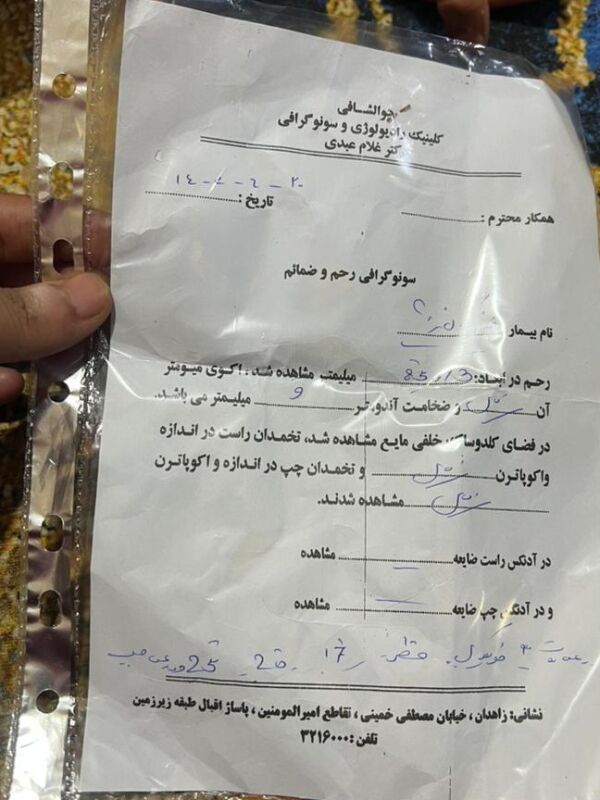 هوالشافی
کلینیک رادیولوژی و سونوگرافی
دکتر غلام عبدی
همکار محترم :
تاریخ :
سونوگرافی رحم و ضمائم
نام بیمار
رحم در ابعاد: میلیمتر مشاهده شد ، اکوی میومتر
آن نرمال و ضخامت آندومتر ۹ میلیمتر می باشد.
در فضای کلدوساک خلفی مایع مشاهده شد، تخمدان راست در اندازه
واکوپاترن نرمال و تخمدان چپ در اندازه و اکوپاترن
نرمال مشاهده شدند.
در آدنکس راست ضایعه مشاهده
و در آدنکس چپ ضایعه مشاهده
رویت فولیکول قطر ۱۷
نشانی: زاهدان ، خیابان مصطفی خمینی ، تقاطع امیرالمومنین ، پاساژ اقبال طبقه زیرزمین
تلفن : ۳۲۱۶۰۰۰